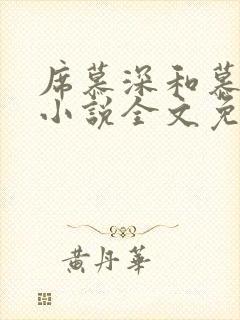 席慕深和慕
小说全文免
黄丹华